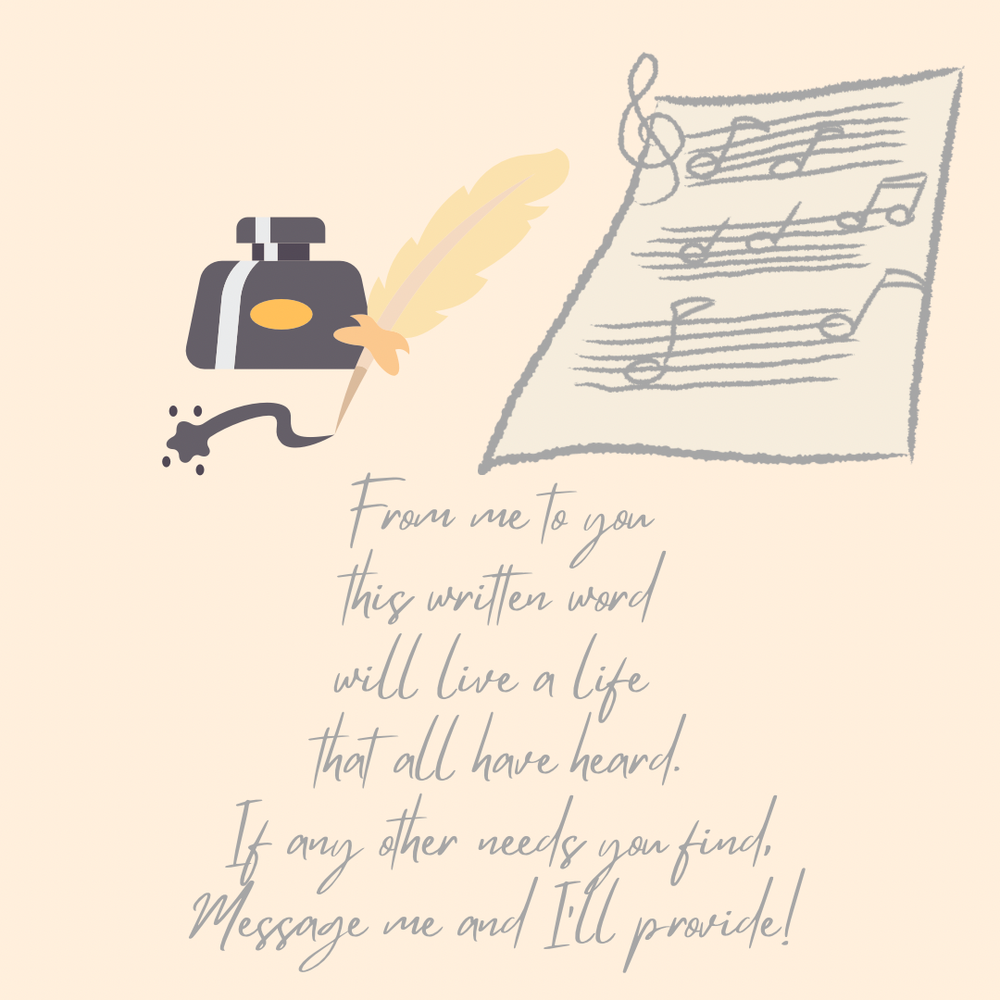 From me to you
this written word
will live a life
that all have heard.
If any other needs you find,
Message me and I'll provide!